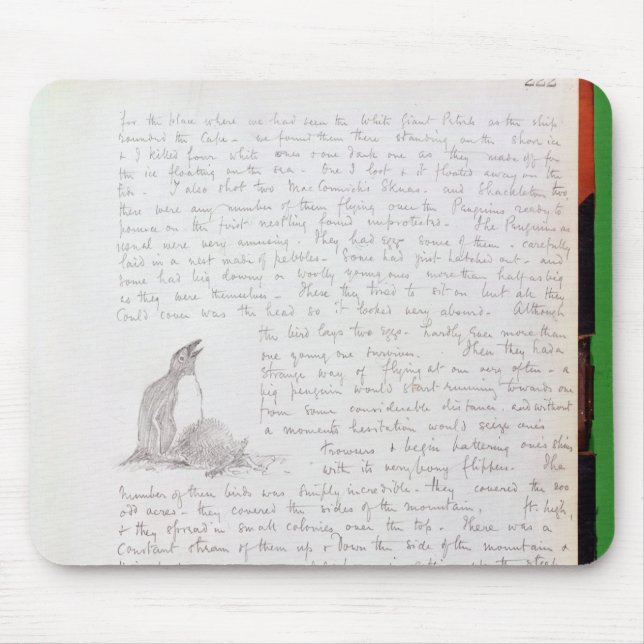 222
for the place where we had seen the White Giant Petrels as the ship
rounded the Cape - we found them there standing on the shore ice
& I killed four white ones & one dark one as they made off for
the ice floating on the sea. One I lost & it floated away on the
tide. I also shot two MacCormick's Skuas. and Shackleton two,
there were any number of them flying over the Penguins ready to
pounce on the first nestling found unprotected. The Penguins as
usual were very amusing. They had eggs some of them - carefully
laid in a nest made of pebbles - Some had just hatched out - and
some had big downy or woolly young ones more than half as big
as they were themselves - These they tried to sit on but all they
could cover was the head so it looked very absurd. Although
the bird lays two eggs - hardly ever more than
one young one survives. Then they had a
strange way of flying at one very often - a
big penguin would start running towards one
from some considerable distance. and without
a moments hesitation would seize one's
trowsers & begin battering one's shins
with its very bony flippers. The
number of these birds was simply incredible - they covered the 200
odd acres - they covered the sides of the mountain, ft. high,
& they spread in small colonies over the top. There was a
constant stream of them up & down the side of the mountain &